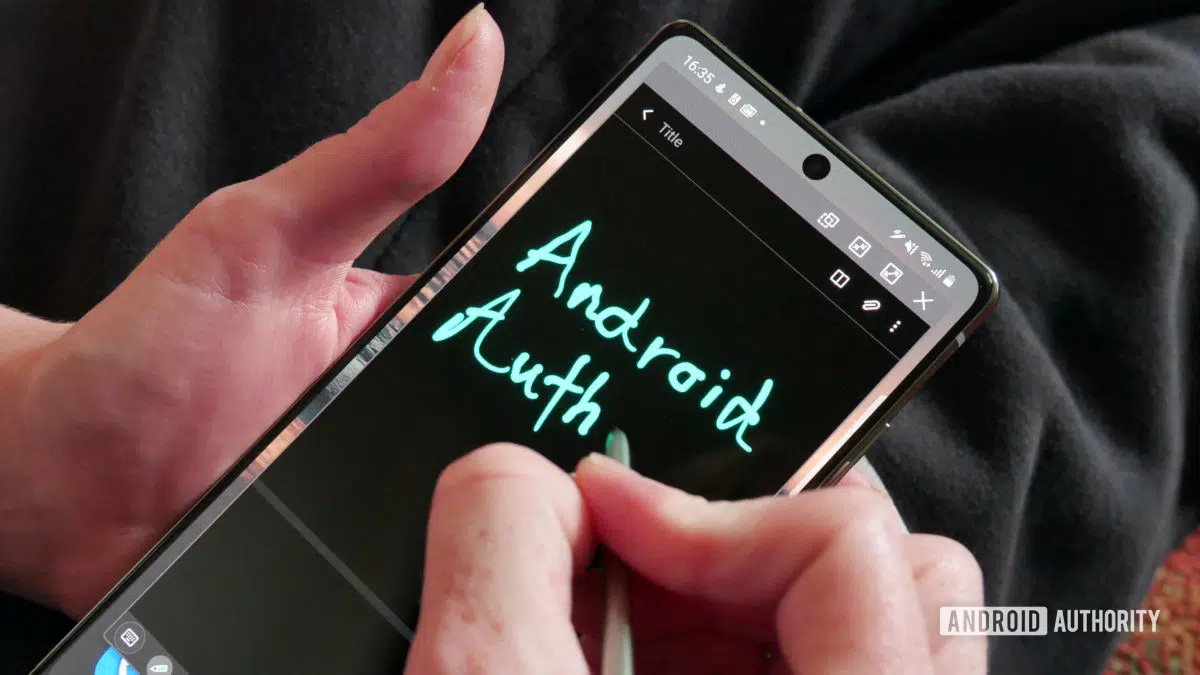 16:35
Title
Android
Auth
ANDROID AUTHORITY